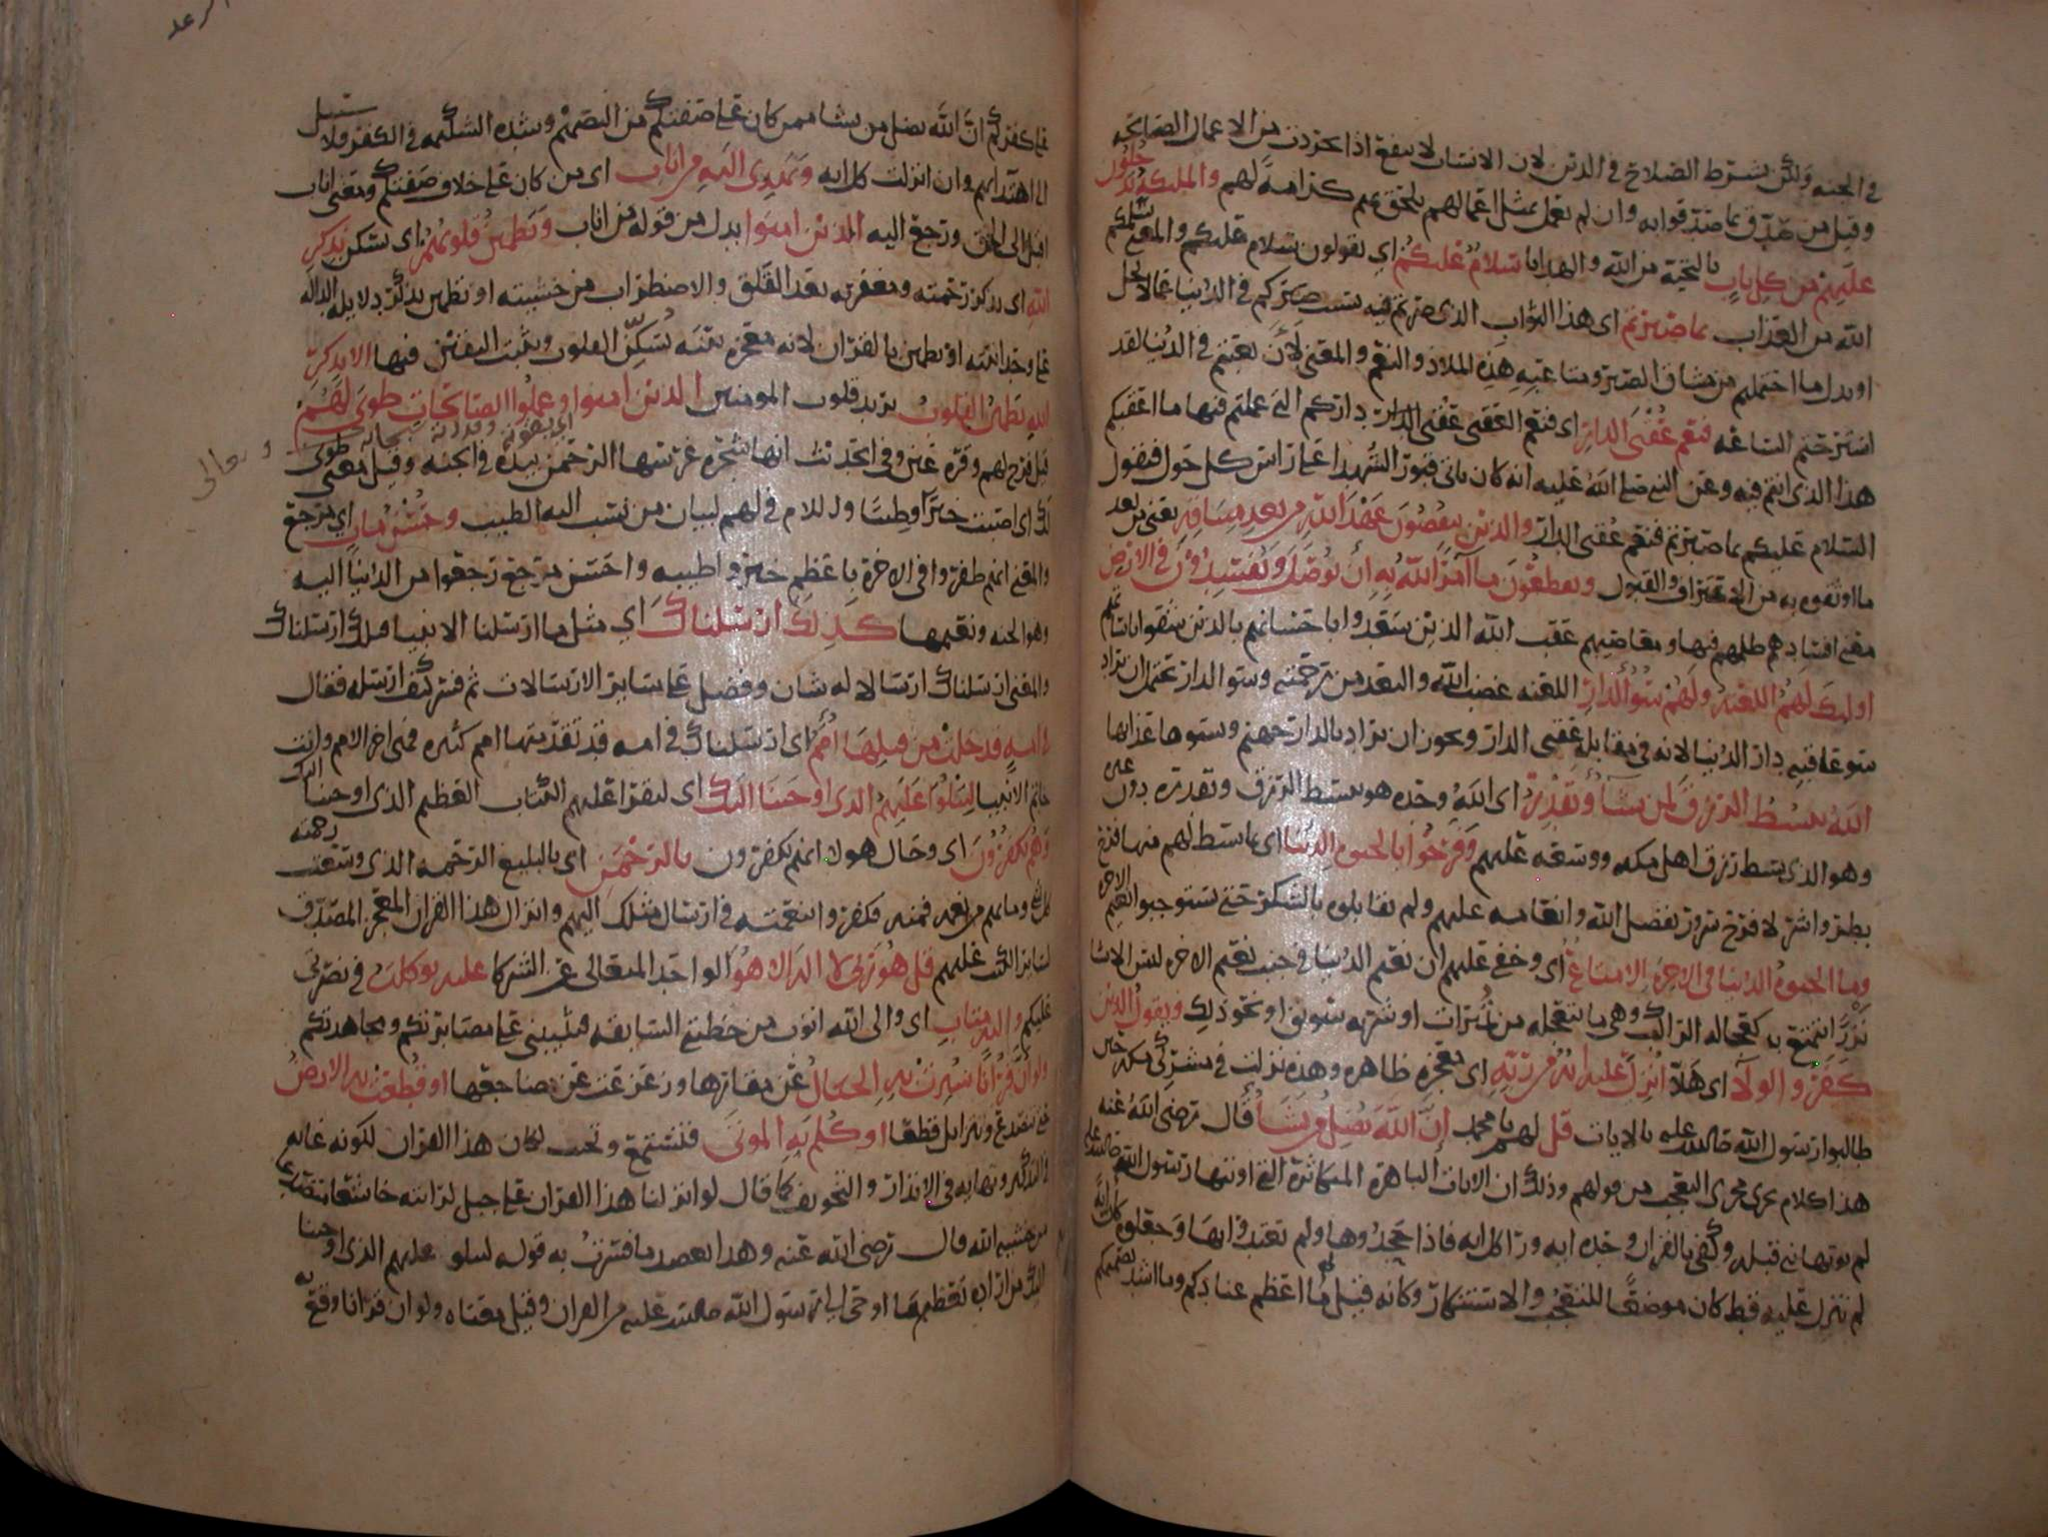 في الجنه ولكن بشرط الصلاح في الدين لان الانسان لا ينفع اذا تجردت من الاعمال الصالحه
وقيل من صدق بما صدقوا به وان لم يعمل بمثل اعمالهم يلحق بهم كرامة لهم والملئكة يدخلون
عليهم من كل باب بالتحية من الله والهدايا سلام عليكم اي يقولون سلام عليكم والمعنى سلمكم
الله من العذاب بما صبرتم اي هذا الثواب الذي صرتم فيه بسبب صبركم في الدنيا
او بدل ما احتملتم من مشاق الصبر ومتاعبه هذه الملاذ والنعم والمعنى لئن تعبتم في الدنيا لقد
استرحتم الساعه فنعم عقبى الدار اي فنعم العقبى عقبى الدار داركم التي عملتم فيها ما اعقبكم
هذا الذي انتم فيه وعن النبي صلى الله عليه انه كان ياتي قبور الشهدا على راس كل حول فيقول
السلام عليكم بما صبرتم فنعم عقبى الدار والذين ينقضون عهد الله من بعد ميثاقه يعني من بعد
ما اوثقوه به من الاعتراف والقبول ويقطعون ما امر الله به ان يوصل ويفسدون في الارض
معنى افسادهم ظلمهم فيها ومعاصيهم عقب الله الذين سعدوا باحسانهم بالذين شقوا
اولئك لهم اللعنه ولهم سوء الدار اللعنه غضب الله والبعد من رحمته وسو الدار تحتمل ان يراد
سو عاقبه دار الدنيا لانه في مقابله عقبى الدار ويجوز ان يراد بالدار جهنم وبسوها عذابها
الله يبسط الرزق لمن يشاء ويقدر اي الله وحده هو يبسط الرزق ويقدره دون غيره
وهو الذي بسط رزق اهل مكه ووسعه عليهم وفرحوا بالحيوه الدنيا اي بما بسط لهم منها فرح
بطر واشر لا فرح سرور بفضل الله وانعامه عليهم ولم يقابلوه بالشكر حتى يستوجبوا نعيم الاخره
وما الحيوه الدنيا في الاخره الا متاع اي وخفي عليهم ان نعيم الدنيا في جنب نعيم الاخره ليس الا شيا
نزرا يتمتع به كعجاله الراكب وهي ما يتعجله من تمرات او شربه سويق او نحو ذلك ويقول الذين
كفروا لولا اي هلا انزل عليه ايه من ربه اي معجزه ظاهره وهذه نزلت في مشركي مكه حين
طالبوا رسول الله صلى الله عليه بالايات قل لهم يا محمد ان الله يضل من يشاء قال رضي الله عنه
هذا كلام يجري مجرى التعجب من قولهم وذلك ان الايات الباهرة المتكاثرة التي اوتيها رسول الله صلى الله عليه
لم يوتها نبي قبله وكفى بالقران وحده ايه ورا كل ايه فاذا جحدوها ولم يعتدوا بها وجعلوه كان ايه
لم تنزل عليه قط كان موضعا للتعجب والاستنكار وكانه قيل لهم ما اعظم عنادكم وما اشد تصميمكم
على كفركم ان الله يضل من يشا ممن كان على صفتكم من التصميم وشده الشكيمه في الكفر ولا سبيل
الى اهتدائهم وان انزلت كل ايه ويهدي اليه من اناب اي من كان على خلاف صفتكم ومعنى اناب
اقبل الى الحق ورجع اليه الذين امنوا بدل من قوله من اناب وتطمئن قلوبهم اي تسكن بذكر
الله اي بذكر رحمته ومغفرته بعد القلق والاضطراب من خشيته او تطمئن بذكر دلايله الداله
على وحدانيته او تطمئن بالقران لانه معجزه بينه تسكن القلوب وتثبت اليقين فيها الا بذكر
الله تطمئن القلوب يريد قلوب المومنين الذين امنوا وعملوا الصالحات طوبى لهم
اي بقوته وقدرته سبحانه وتعالى
قيل فرح لهم وقره عين وفي الحديث انها شجره غرسها الرحمن بيده في الجنه وقيل معنى طوبى
لك اي اصبت خيرا وطيبا واللام في لهم لبيان من نسب اليه الطيب وحسن ماب اي مرجع
والمعنى انهم ظفروا في الاخرة باعظم خير واطيبه واحسن مرجع رجعوا من الدنيا اليه
وهو الجنه ونعيمها كذلك ارسلناك اي مثل ما ارسلنا الانبيا قبلك ارسلناك
والمعنى ارسلناك ارسالا له شان وفضل على ساير الارسالات ثم فسر كيف ارسله فقال
في امه قد خلت من قبلها امم اي ارسلناك في امه قد تقدمتها امم كثيره فهي اخر الامم وانت
خاتم الانبيا لتتلوا عليهم الذي اوحينا اليك اي لتقرا عليهم الكتاب العظيم الذي اوحينا اليك
وهم يكفرون اي وحال هولا انهم يكفرون بالرحمن اي بالبليغ الرحمه الذي وسعت رحمته
كل شي وما بهم من نعمه فمنه فكفروا نعمته في ارسال مثلك اليهم وانزال هذا القران المعجز المصدق
لساير الكتب عليهم قل هو ربي لا اله الا هو الواحد المتعالي عن الشركا عليه توكلت في نصرتي
عليكم واليه متاب اي والى الله اتوب من خطيتي السابقه فيثيبني على مصابرتكم ومجاهدتكم
ولو ان قرانا سيرت به الجبال عن مقارها وزعزعت عن مضاجعها او قطعت به الارض
حتى تتصدع وتتزايل قطعا او كلم به الموتى فتستمع وتجيب لكان هذا القران لكونه غايه
في التذكير ونهايه في الانذار والتخويف كما قال لو انزلنا هذا القران على جبل لرايته خاشعا متصدعا
من خشيه الله قال رضي الله عنه وهذا يعضد ما فسرت به قوله لتتلو عليهم الذي اوحينا
اليك من اراده تعظيم ما اوحي الى رسول الله صلى الله عليه من القران وقيل معناه ولو ان قرانا وقع به